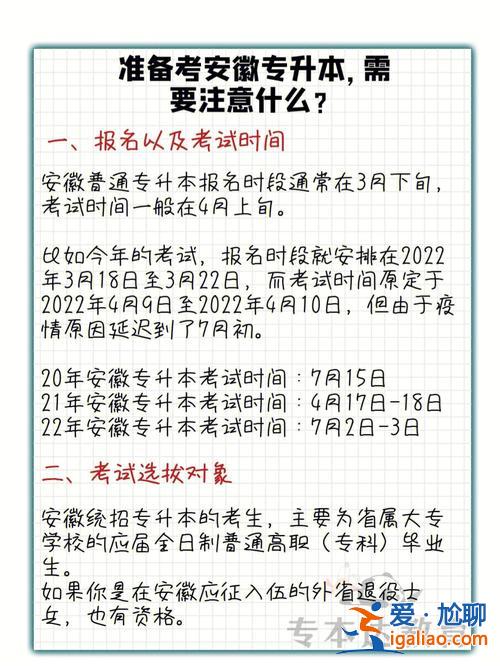 准备考安徽专升本,需
要注意什么?
一、报名以及考试时间
安徽普通专升本报名时段通常在3月下旬,
考试时间一般在4月上旬。
比如今年的考试,报名时段就安排在2022
年3月18日至3月22日,而考试时间原定于
2022年4月9日至2022年4月10日,但由于疫
情原因延迟到了7月初。
20年安徽专升本考试时间:7月15日
21年安徽专升本考试时间:4月17日-18日
22年安徽专升本考试时间:7月2日-3日
二、考试选拔对象
安徽统招专升本的考生,主要为省属大专
学校的应届全日制普通高职(专科)毕业
生。
如果你是在安徽应征入伍的外省退役士
兵,也有资格。
专本达教育
爱·尬聊
igaliao.com